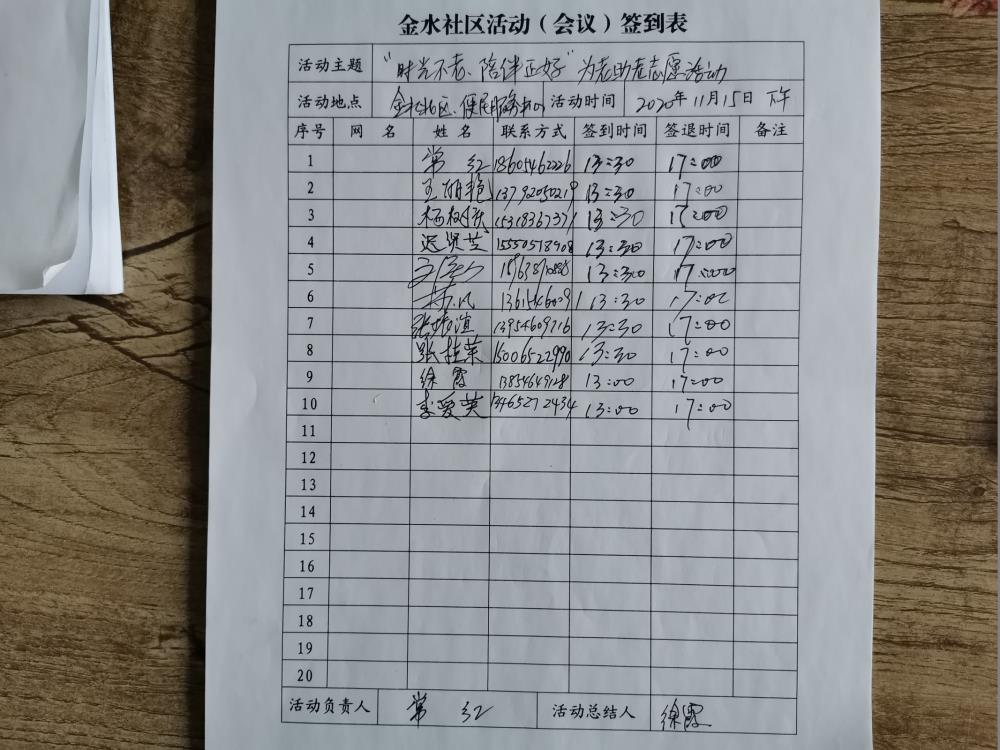 金水社区活动（会议）签到表
活动主题 “时光不老、陪伴正好”为老助老志愿活动
活动地点 金水社区、便民服务 活动时间 2020年11月15日 下午
序号 网 名 姓 名 联系方式 签到时间 签退时间 备注
1 常 红 18605462226 13:30 17:00
2 王丽艳 13792050219 13:30 17:00
3 15318367371 13:30 17:00
4 迟贤芝 15550578908 13:30 17:00
5 13:30 17:00
6 13:30 17:02
7 13954609716 13:30 17:00
8 张桂荣 15006522990 13:30 17:00
9 徐霞 13854649128 13:00 17:00
10 李爱英 13465272434 13:00 17:00
11
12
13
14
15
16
17
18
19
20
活动负责人 常 红 活动总结人 徐霞